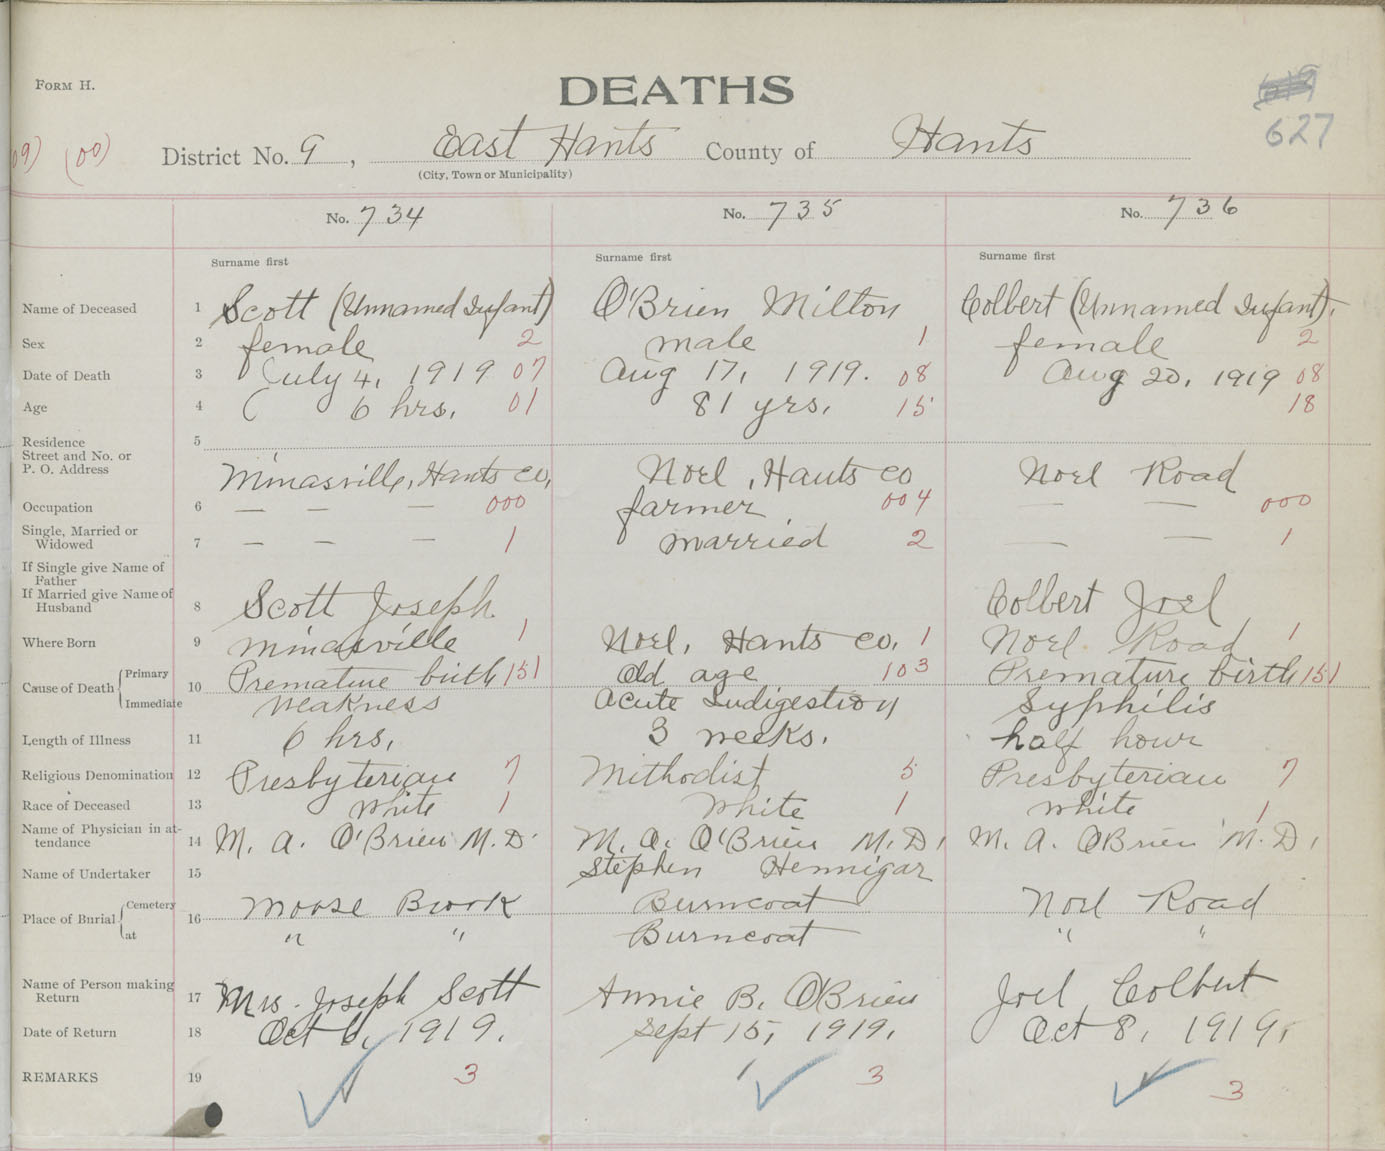 FORM H.
DEATHS
627
09) (00) District No. 9, East Hants County of Hants
(City, Town or Municipality)
No. 734 No. 735 No. 736
Surname first Surname first Surname first
Name of Deceased 1 Scott (Unnamed Infant) O'Brien Milton Colbert (Unnamed Infant).
Sex 2 female 2 male 1 female 2
Date of Death 3 July 4, 1919 07 Aug 17, 1919. 08 Aug 20, 1919 08
Age 4 6 hrs. 01 81 yrs. 15 18
Residence 5
Street and No. or
P. O. Address Minasville, Hants Co, Noel, Hants Co Noel Road
Occupation 6 — — — 000 farmer 004 — — 000
Single, Married or
Widowed 7 — — — 1 married 2 — — 1
If Single give Name of
Father
If Married give Name of
Husband 8 Scott Joseph Colbert Joel
Where Born 9 Minasville 1 Noel, Hants Co, 1 Noel Road 1
Cause of Death Primary 10 Premature birth 151 Old age 103 Premature birth 151
Immediate weakness Acute Indigestion Syphilis
Length of Illness 11 6 hrs, 3 weeks. half hour
Religious Denomination 12 Presbyterian 7 Mithodist 5 Presbyterian 7
Race of Deceased 13 White 1 White 1 White 1
Name of Physician in at-
tendance 14 M. A. O'Brien M.D. M. A. O'Brien M.D. M. A. OBrien M.D.
Name of Undertaker 15 Stephen Hennigar
Place of Burial Cemetery 16 Moose Brook Burncoat Noel Road
at " " Burncoat " "
Name of Person making
Return 17 Mrs. Joseph Scott Annie B. OBrien Joel Colbert
Date of Return 18 Oct 6, 1919. Sept 15, 1919. Oct 8, 1919.
REMARKS 19 3 3 3